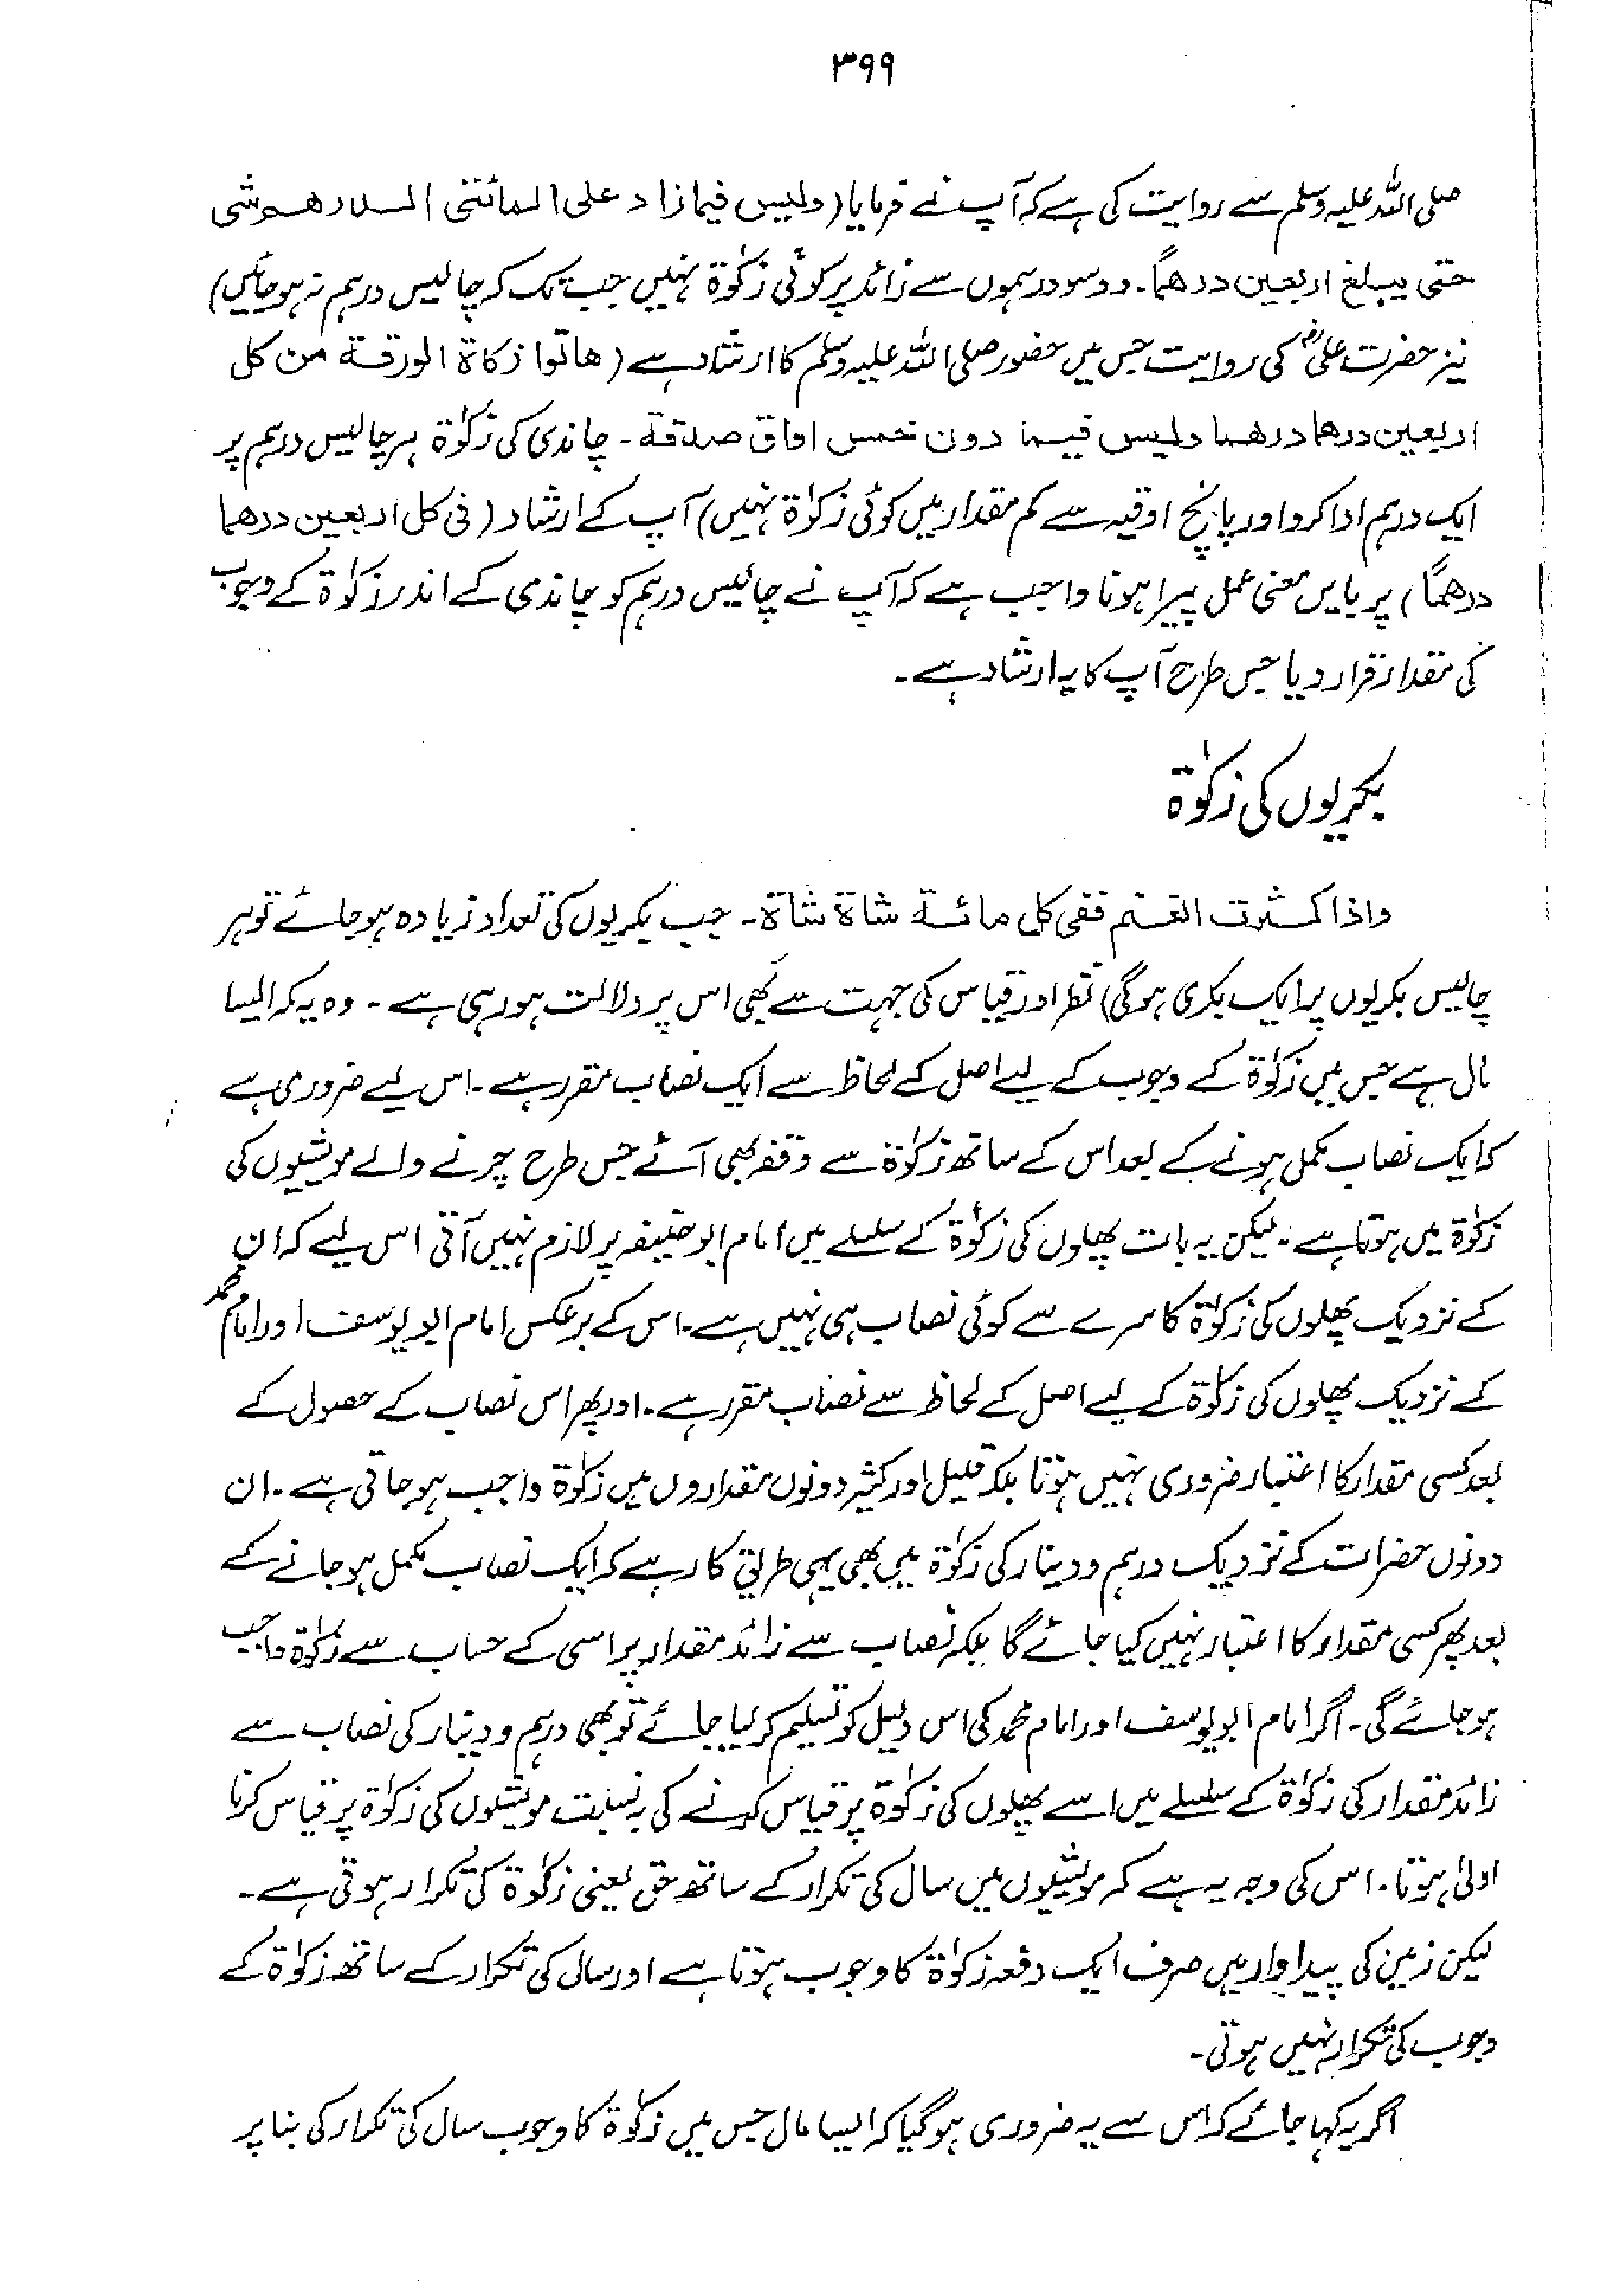 ۳۹۹
صلی اللہ علیہ وسلم سے روایت کی ہے کہ آپ نے فرمایا (ولیس فیما زاد علی المائتی الدرھم شئی
حتی یبلغ اربعین درھمًا۔ دو سو درہموں سے زائد پر کوئی زکوٰۃ نہیں جب تک کہ چالیس درہم نہ ہو جائیں)
نیز حضرت علیؓ کی روایت جس میں حضور صلی اللہ علیہ وسلم کا ارشاد ہے (ھاتوا زکاۃ الورقۃ من کل
اربعین درھما درھما ولیس فیما دون خمس اواق صدقۃ۔ چاندی کی زکوٰۃ ہر چالیس درہم پر
ایک درہم ادا کرو اور پانچ اوقیہ سے کم مقدار میں کوئی زکوٰۃ نہیں) آپ کے ارشاد (فی کل اربعین درھما
درھمًا) پر بایں معنی عمل پیرا ہونا واجب ہے کہ آپ نے چالیس درہم کو چاندی کے اندر زکوٰۃ کے وجوب
کی مقدار قرار دیا جس طرح آپ کا یہ ارشاد ہے۔
بکریوں کی زکوٰۃ
واذا کثرت الغنم ففی کل مائۃ شاۃ شاۃ۔ جب بکریوں کی تعداد زیادہ ہو جائے تو ہر
چالیس بکریوں پر ایک بکری ہو گی) نظر اور قیاس کی جہت سے بھی اس پر دلالت ہو رہی ہے۔ وہ یہ کہ ایسا
مال ہے جس میں زکوٰۃ کے وجوب کے لیے اصل کے لحاظ سے ایک نصاب مقرر ہے۔ اس لیے ضروری ہے
کہ ایک نصاب مکمل ہونے کے بعد اس کے ساتھ زکوٰۃ سے وقفہ بھی آئے جس طرح چرنے والے مویشیوں کی
زکوٰۃ میں ہوتا ہے۔ لیکن یہ بات پھلوں کی زکوٰۃ کے سلسلے میں امام ابو حنیفہ پر لازم نہیں آتی اس لیے کہ ان
کے نزدیک پھلوں کی زکوٰۃ کا سرے سے کوئی نصاب ہی نہیں ہے۔ اس کے برعکس امام ابو یوسف اور امام محمد
کے نزدیک پھلوں کی زکوٰۃ کے لیے اصل کے لحاظ سے نصاب مقرر ہے۔ اور پھر اس نصاب کے حصول کے
بعد کسی مقدار کا اعتبار ضروری نہیں ہوتا بلکہ قلیل اور کثیر دونوں مقداروں میں زکوٰۃ واجب ہو جاتی ہے۔ ان
دونوں حضرات کے نزدیک درہم و دینار کی زکوٰۃ میں بھی یہی طریق کار ہے کہ ایک نصاب مکمل ہو جانے کے
بعد پھر کسی مقدار کا اعتبار نہیں کیا جائے گا بلکہ نصاب سے زائد مقدار پر اسی کے حساب سے زکوٰۃ واجب
ہو جائے گی۔ اگر امام ابو یوسف اور امام محمد کی اس دلیل کو تسلیم کر لیا جائے تو بھی درہم و دینار کی نصاب سے
زائد مقدار کی زکوٰۃ کے سلسلے میں اسے پھلوں کی زکوٰۃ پر قیاس کرنے کی بہ نسبت مویشیوں کی زکوٰۃ پر قیاس کرنا
اولیٰ ہوتا۔ اس کی وجہ یہ ہے کہ مویشیوں میں سال کی تکرار کے ساتھ حق یعنی زکوٰۃ کی تکرار ہوتی ہے۔
لیکن زمین کی پیداوار میں صرف ایک دفعہ زکوٰۃ کا وجوب ہوتا ہے اور سال کی تکرار کے ساتھ زکوٰۃ کے
وجوب کی تکرار نہیں ہوتی۔
اگر یہ کہا جائے کہ اس سے یہ ضروری ہو گیا کہ ایسا مال جس میں زکوٰۃ کا وجوب سال کی تکرار کی بنا پر